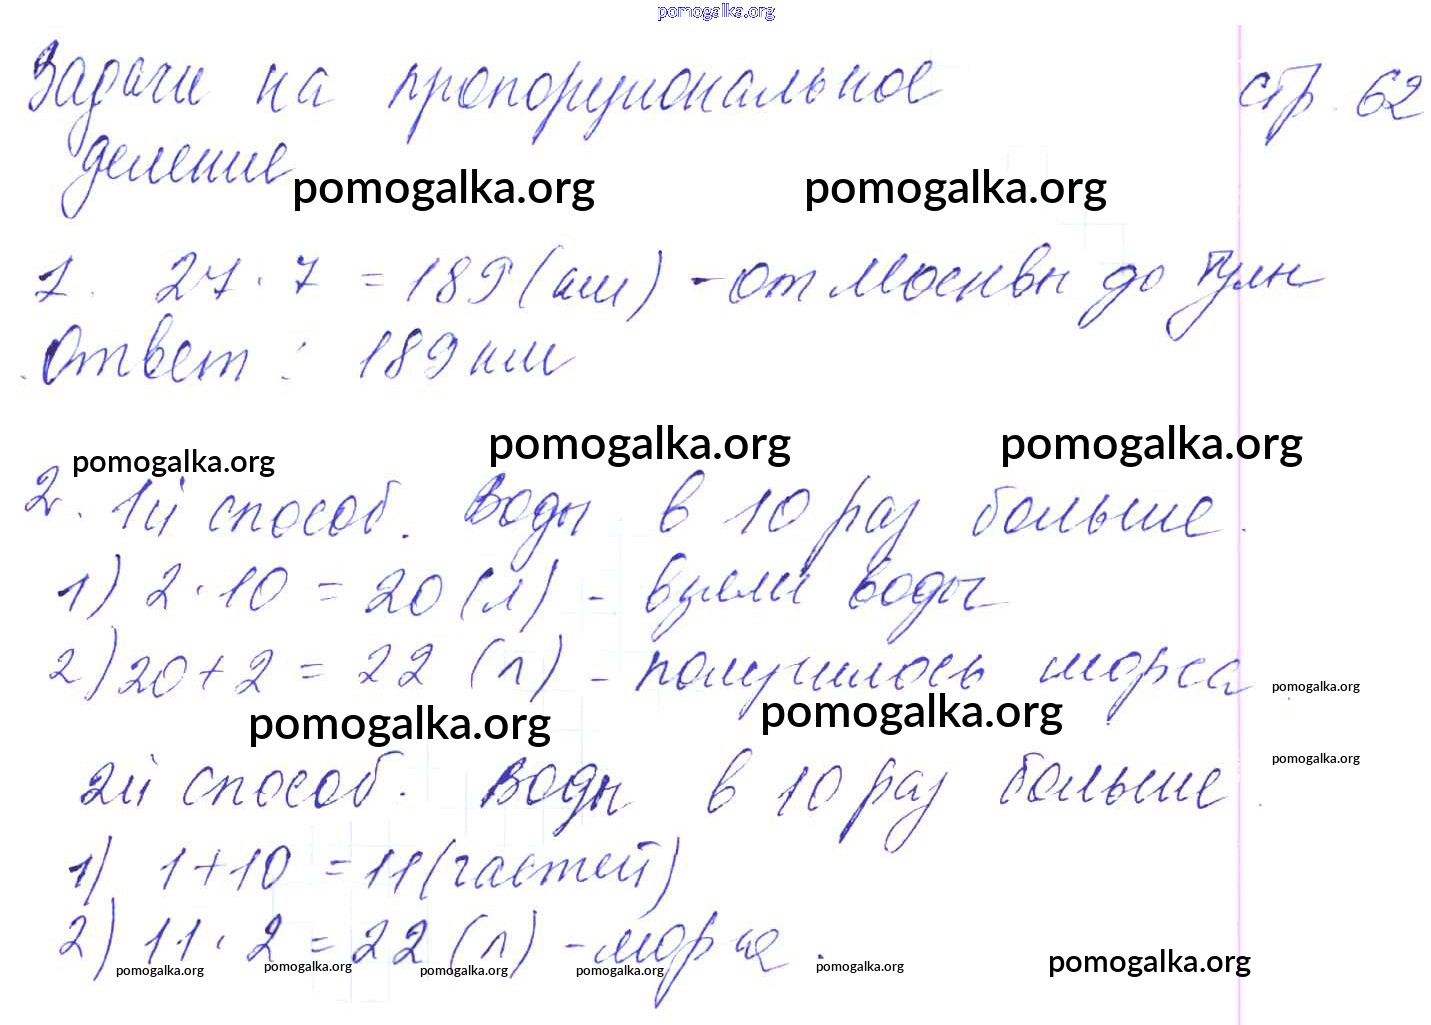 pomogalka.org
Задачи на пропорциональное стр. 62
деление
pomogalka.org pomogalka.org
1. 27 · 7 = 189 (км) - от Москвы до Тулы
Ответ : 189 км
pomogalka.org pomogalka.org
pomogalka.org
2. 1й способ. Воды в 10 раз больше.
1) 2 · 10 = 20 (л) - взяли воды
2) 20 + 2 = 22 (л) - получилось морса
pomogalka.org
pomogalka.org pomogalka.org
pomogalka.org
2й способ. Воды в 10 раз больше.
1) 1 + 10 = 11 (частей)
2) 11 · 2 = 22 (л) - морса.
pomogalka.org pomogalka.org pomogalka.org pomogalka.org pomogalka.org pomogalka.org